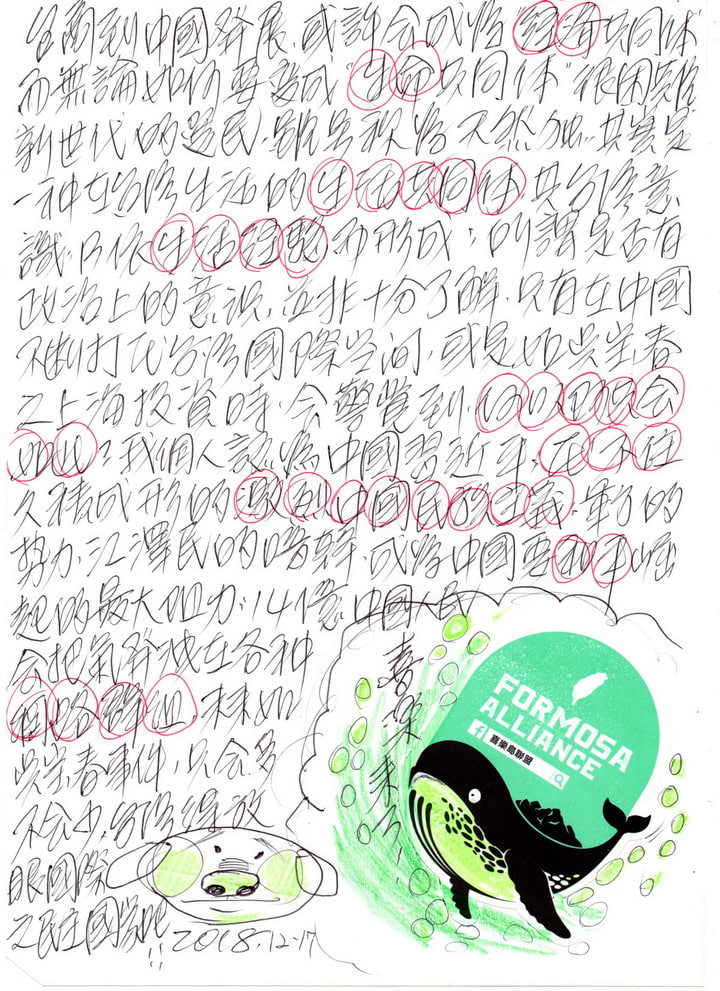 台商到中國發展，或許会成為"經濟共同体
而無論如何要變成"生命共同体"很困難
新世代的選民，號稱為天然独，其實是
一种在台灣生活的生活共同体 其台灣意
識，乃依生活經驗而形成；所謂是否有
政治上的意識，並非十分了解，只有在中國
不断打压台灣國際空间，或是如吳宝春
之上海投資時，会驚覺到，何以 会
如此？我個人認為中國習近平，
久積成形的 中國民族主義，軍方的
勢力，江澤民的 ，成為中國要和平崛
起的最大阻力；14億中國人民
会把氣發洩在各种
網路 ，未來如
吳宝春事件，只会多
不会少，台灣得放
眼國際
之民主國家吧!!
2018.12-17
喜樂 來了
FORMOSA
ALLIANCE
喜樂島聯盟